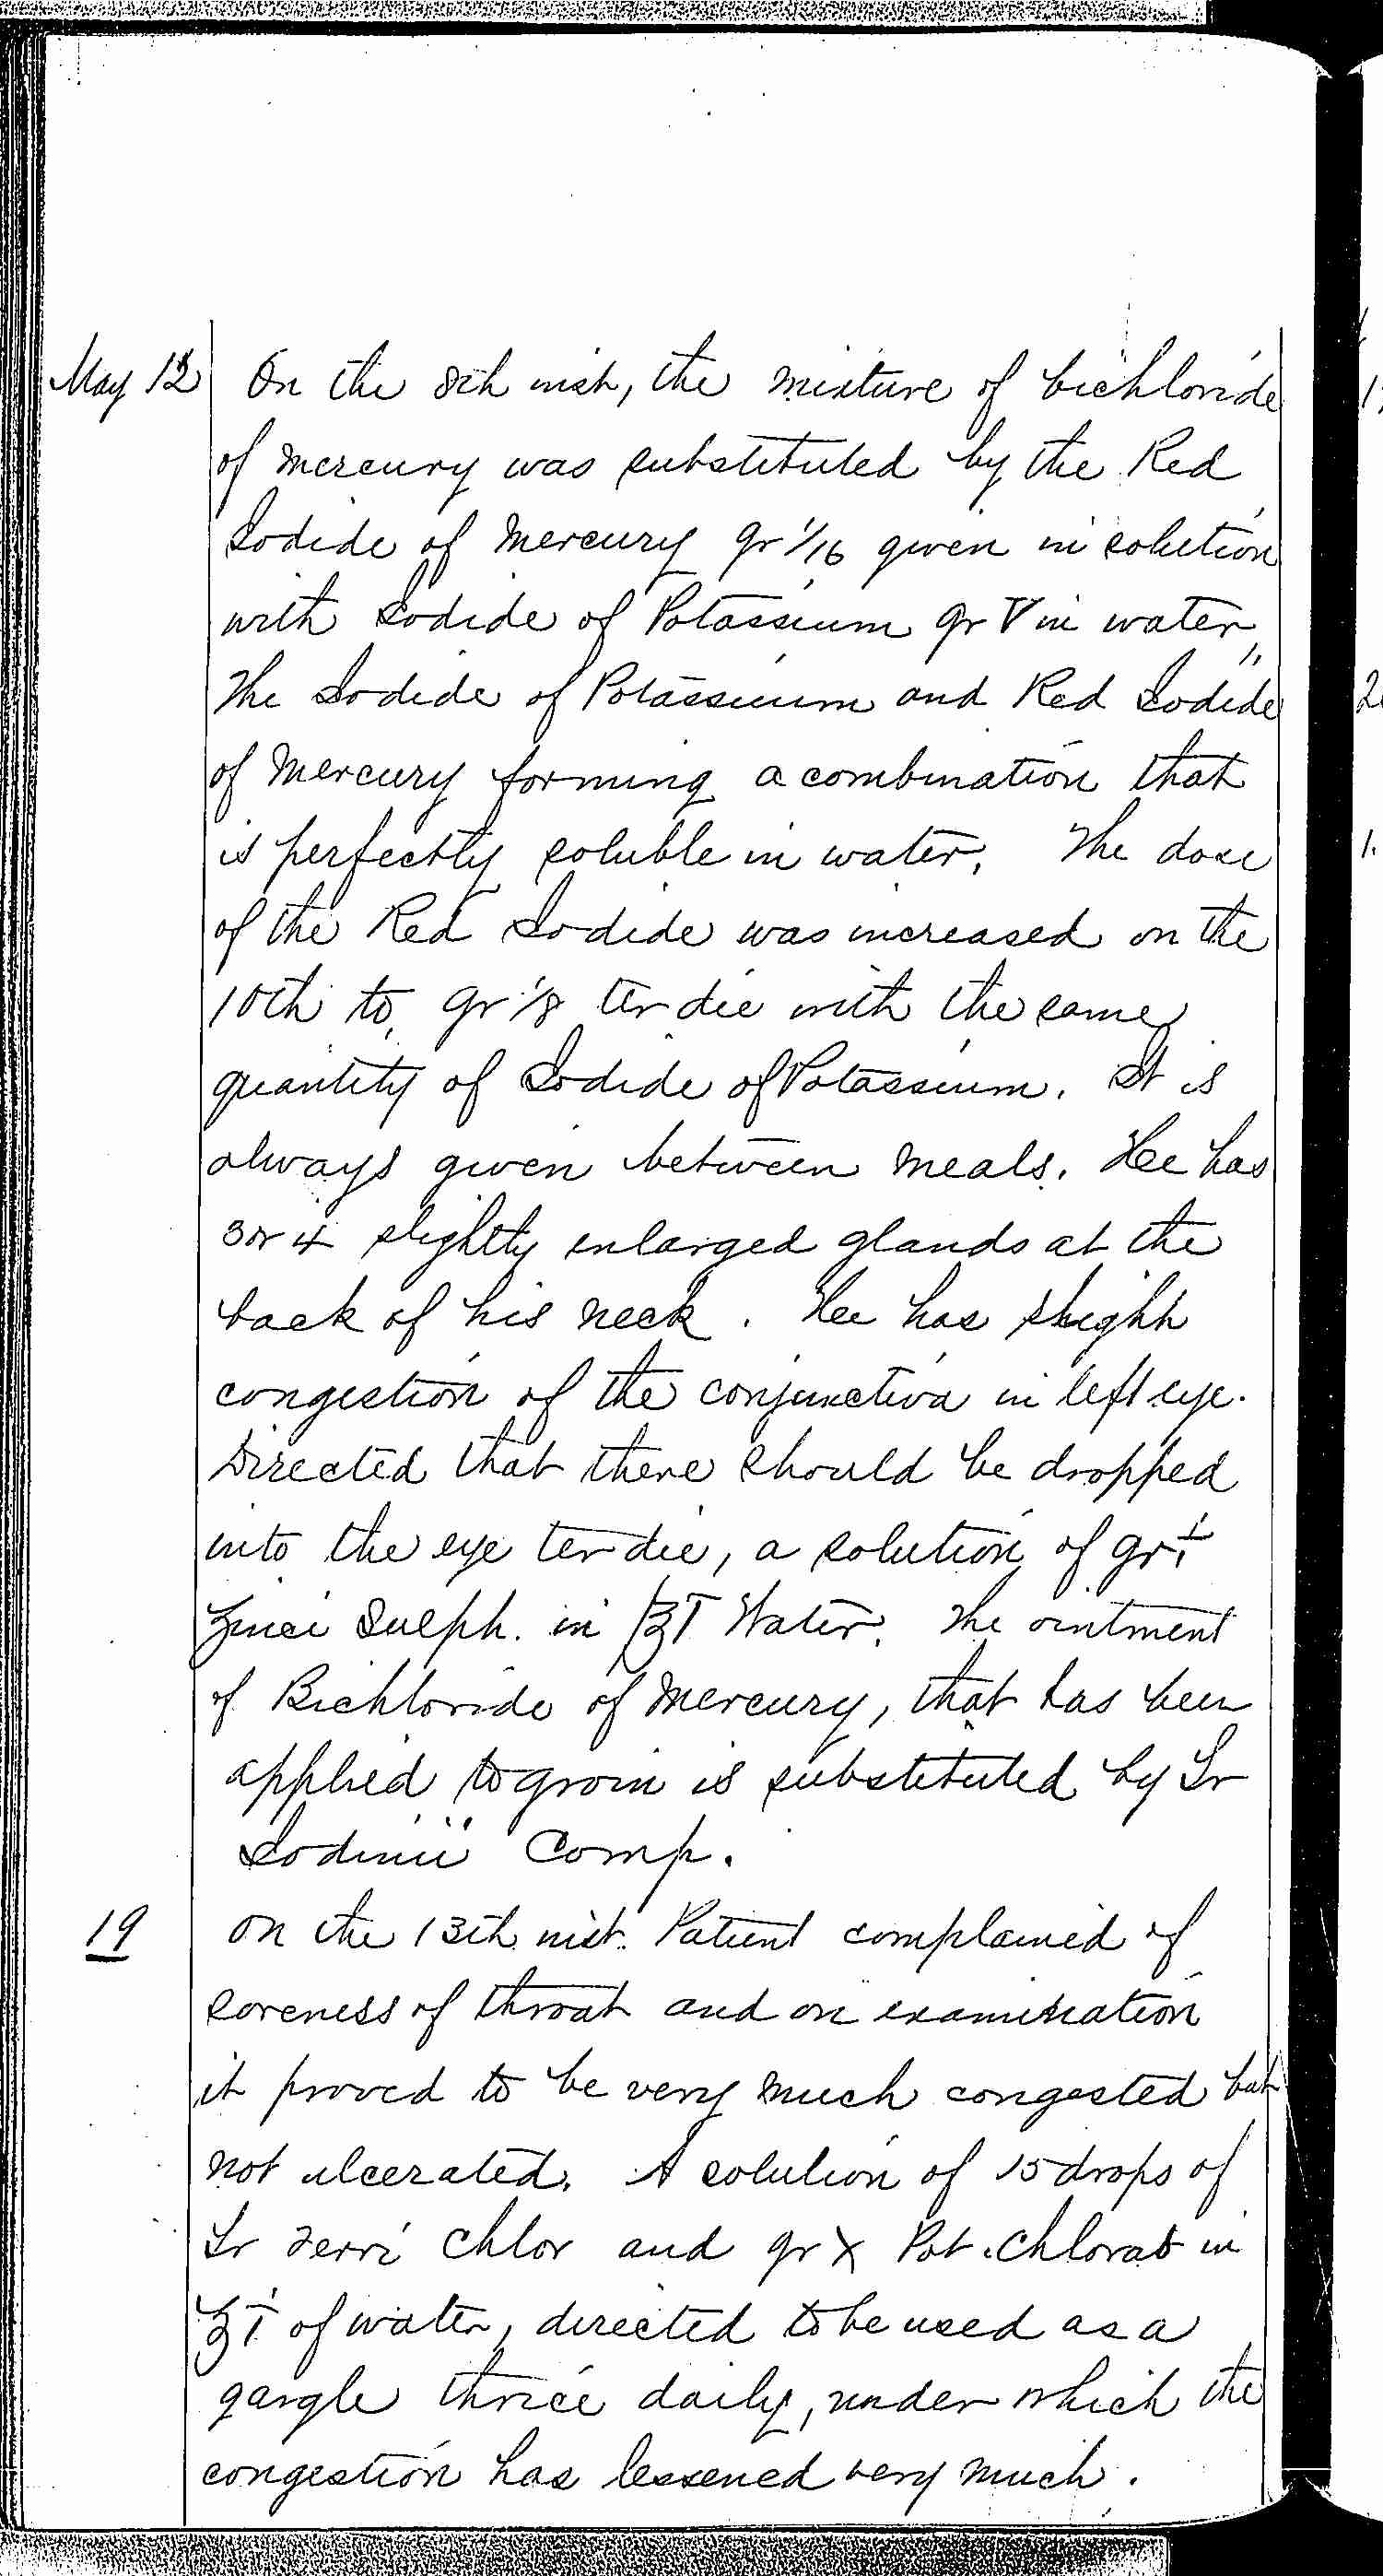 May 12 On the 8th inst, the mixture of bichloride
of mercury was substituted by the Red
Iodide of Mercury gr 1/16 given in solution
with Iodide of Potassium gr V in water,
The Iodide of Potassium and Red Iodide
of Mercury forming a combination that
is perfectly soluble in water. The dose
of the Red Iodide was increased on the
10th to gr 1/8 ter die with the same
quantity of Iodide of Potassium. It is
always given between meals. He has
3 or 4 slightly enlarged glands at the
back of his neck. He has slight
congestion of the conjunctiva in left eye.
Directed that there should be dropped
into the eye ter die, a solution of gr i
Zinci Sulph. in ℥i Water. The ointment
of Bichloride of Mercury, that has been
applied to groin is substituted by Tr
Iodinii Comp.
19 On the 13th inst. Patient complained of
soreness of throat and on examination
it proved to be very much congested but
not ulcerated. A solution of 15 drops of
Tr Ferri Chlor and gr X Pot. Chlorat in
℥i of water, directed to be used as a
gargle thrice daily, under which the
congestion has lessened very much.